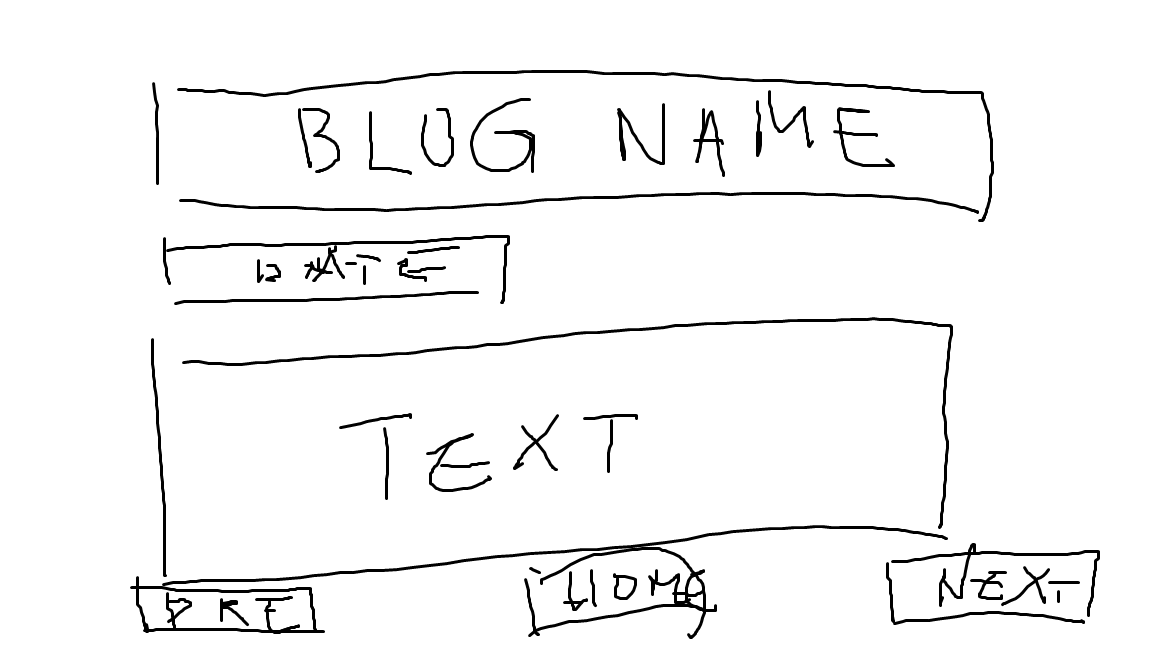 BLOG NAME
DATE
TEXT
PRE HOME NEXT